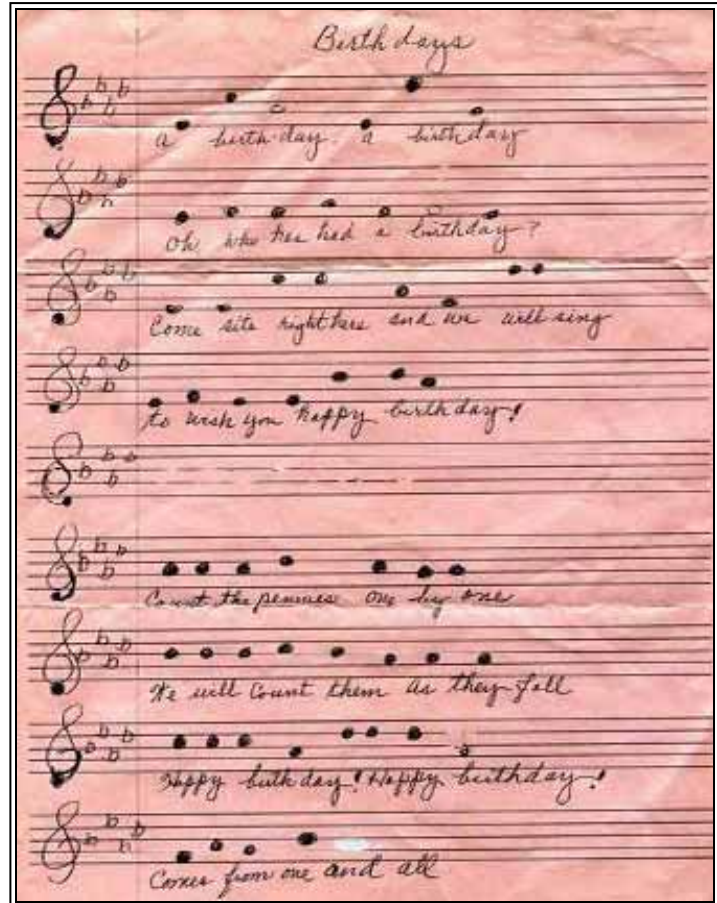 Birthdays
a birth-day. a birthday
Oh, who has had a birthday?
Come site right here and we will sing
to wish you happy birthday!
Count the pennies one by one
We will Count them as they fall
Happy birthday! Happy birthday!
Comes from one and all